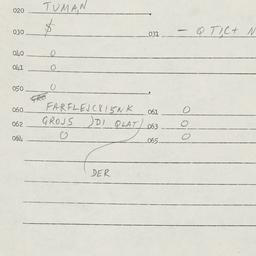 020 TUMAN
030 $ 031 - Q TICT N
040 0
041 0
050 0
060 FARFLEJCVISNK 061 0
062 GROJS )DI QLAT) 063 0
064 0 065 0
DER